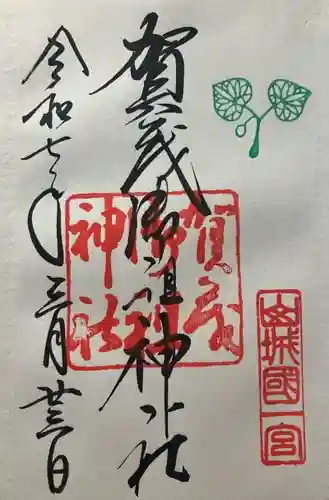 山城國一宮
賀茂御祖神社
賀茂御祖神社
令和七年三月廿三日